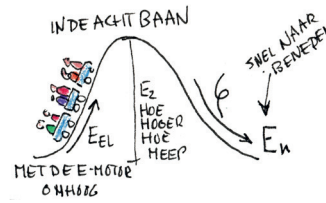 IN DE ACHTBAAN
SNEL NAAR
BENEDEN
E_EL
E_Z
HOE
HOGER
HOE
MEER
E_k
MET DE E-MOTOR
OMHOOG